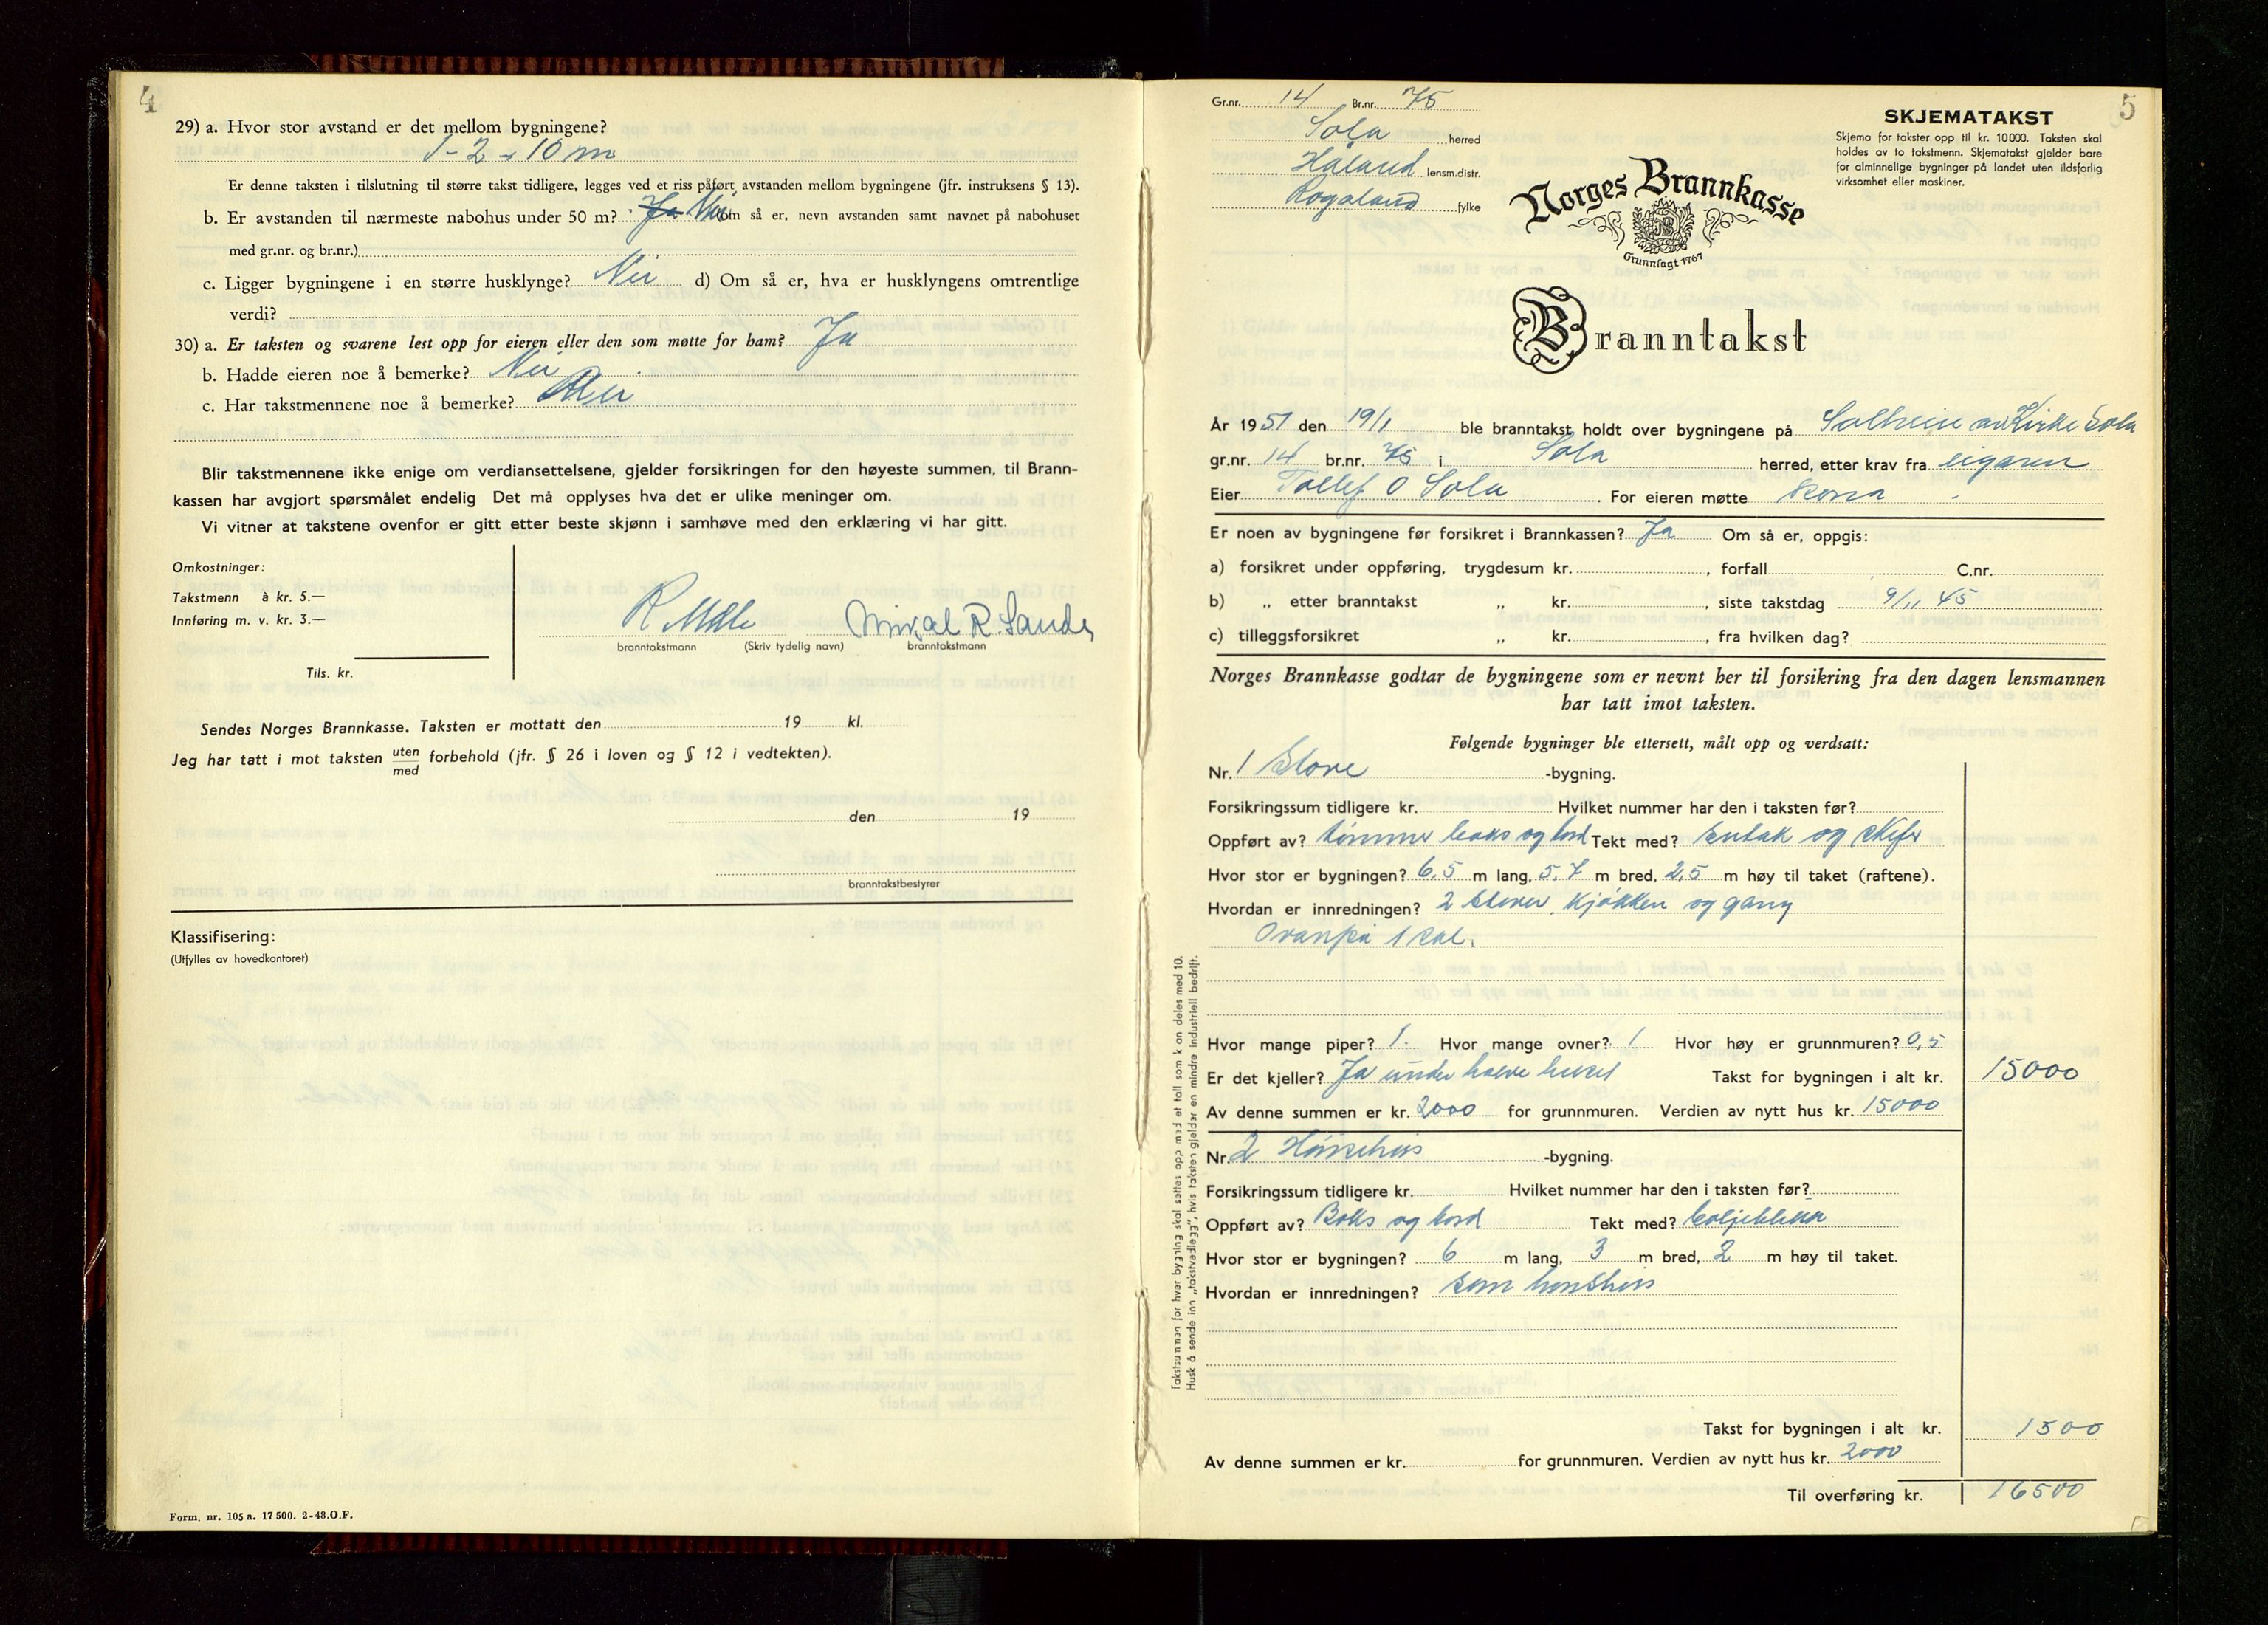 4
29) a. Hvor stor avstand er det mellom bygningene?
1-2 → 10 m
Er denne taksten i tilslutning til større takst tidligere, legges ved et riss påført avstanden mellom bygningene (jfr. instruksens § 13).
b. Er avstanden til nærmeste nabohus under 50 m? Ja Nei Om så er, nevn avstanden samt navnet på nabohuset
med gr.nr. og br.nr.)
c. Ligger bygningene i en større husklynge? Nei d) Om så er, hva er husklyngens omtrentlige
verdi?
30) a. Er taksten og svarene lest opp for eieren eller den som møtte for ham? Ja
b. Hadde eieren noe å bemerke? Nei
c. Har takstmennene noe å bemerke? Nei
Blir takstmennene ikke enige om verdiansettelsene, gjelder forsikringen for den høyeste summen, til Brann-
kassen har avgjort spørsmålet endelig Det må opplyses hva det er ulike meninger om.
Vi vitner at takstene ovenfor er gitt etter beste skjønn i samhøve med den erklæring vi har gitt.
Omkostninger:
Takstmenn à kr. 5.—
Innføring m. v. kr. 3.—
Tils. kr.
R. R. Sande
branntakstmann (Skriv tydelig navn) branntakstmann
Sendes Norges Brannkasse. Taksten er mottatt den 19 kl.
Jeg har tatt i mot taksten uten/med forbehold (jfr. § 26 i loven og § 12 i vedtekten).
den 19
branntakstbestyrer
Klassifisering:
(Utfylles av hovedkontoret)
Form. nr. 105 a. 17 500. 2-48.O.F.
5
Gr.nr. 14 Br.nr. 75
Sola herred
Håland lensm.distr.
Rogaland fylke
SKJEMATAKST
Skjema for takster opp til kr. 10000. Taksten skal
holdes av to takstmenn. Skjematakst gjelder bare
for alminnelige bygninger på landet uten ildsfarlig
virksomhet eller maskiner.
Norges Brannkasse
Grunnlagt 1767
Branntakst
År 1951 den 19/1 ble branntakst holdt over bygningene på Solheim av Kirke Sola
gr.nr. 14 br.nr. 75 i Sola herred, etter krav fra eigaren
Eier Tollef O Sola. For eieren møtte kona
Er noen av bygningene før forsikret i Brannkassen? Ja Om så er, oppgis:
a) forsikret under oppføring, trygdesum kr. , forfall C.nr.
b) „ etter branntakst „ kr. , siste takstdag 9/11 45
c) tilleggsforsikret „ kr. , fra hvilken dag?
Norges Brannkasse godtar de bygningene som er nevnt her til forsikring fra den dagen lensmannen
har tatt imot taksten.
Følgende bygninger ble ettersett, målt opp og verdsatt:
Nr. 1 Stove -bygning.
Forsikringssum tidligere kr. Hvilket nummer har den i taksten før?
Oppført av? tømmer boks og bord Tekt med? entak og skifer
Hvor stor er bygningen? 6,5 m lang, 5,7 m bred, 2,5 m høy til taket (raftene).
Hvordan er innredningen? 2 stover, kjøkken og gang
Ovanpå 1 sal.
Hvor mange piper? 1. Hvor mange ovner? 1 Hvor høy er grunnmuren? 0,5
Er det kjeller? Ja under halve huset Takst for bygningen i alt kr. 15000
Av denne summen er kr. 2000 for grunnmuren. Verdien av nytt hus kr. 15000
Nr. 2 Hønsehus -bygning.
Forsikringssum tidligere kr. Hvilket nummer har den i taksten før?
Oppført av? Boks og bord Tekt med?
Hvor stor er bygningen? 6 m lang, 3 m bred, 2 m høy til taket.
Hvordan er innredningen? som honshus
Takst for bygningen i alt kr. 1500
Av denne summen er kr. for grunnmuren. Verdien av nytt hus kr. 2000
Til overføring kr. 16500
Takstsummen for hver bygning skal settes opp med et tall som kan deles med 10.
Husk å sende inn „takstvedlegg”, hvis taksten gjelder en mindre industriell bedrift.